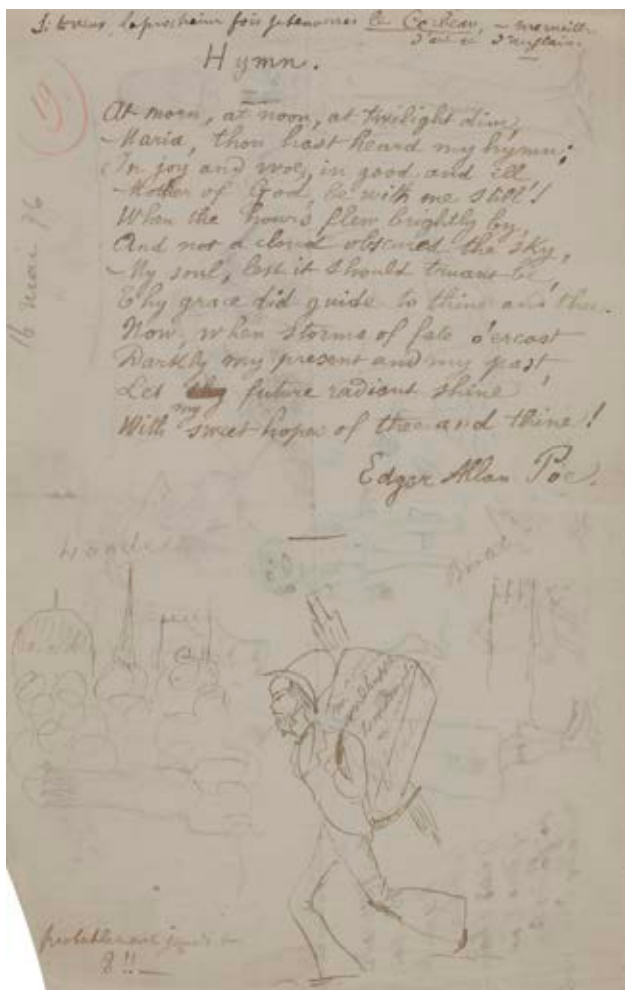 Si tu veux, la prochaine fois je t'enverrai le Corbeau, – merveille
d'art et d'anglais.
Hymn.
19
At morn, at noon, at twilight dim,
Maria, thou hast heard my hymn;
In joy and woe, in good and ill
Mother of God, be with me still!
When the hours flew brightly by,
And not a cloud obscured the sky,
My soul, lest it should truant be,
Thy grace did guide to thine and thee.
Now, when storms of fate o'ercast
Darkly my present and my past,
Let my future radiant shine
With sweet hopes of thee and thine!
Edgar Allan Poe.
16 mai 76
London
probablement jeudi
8!!